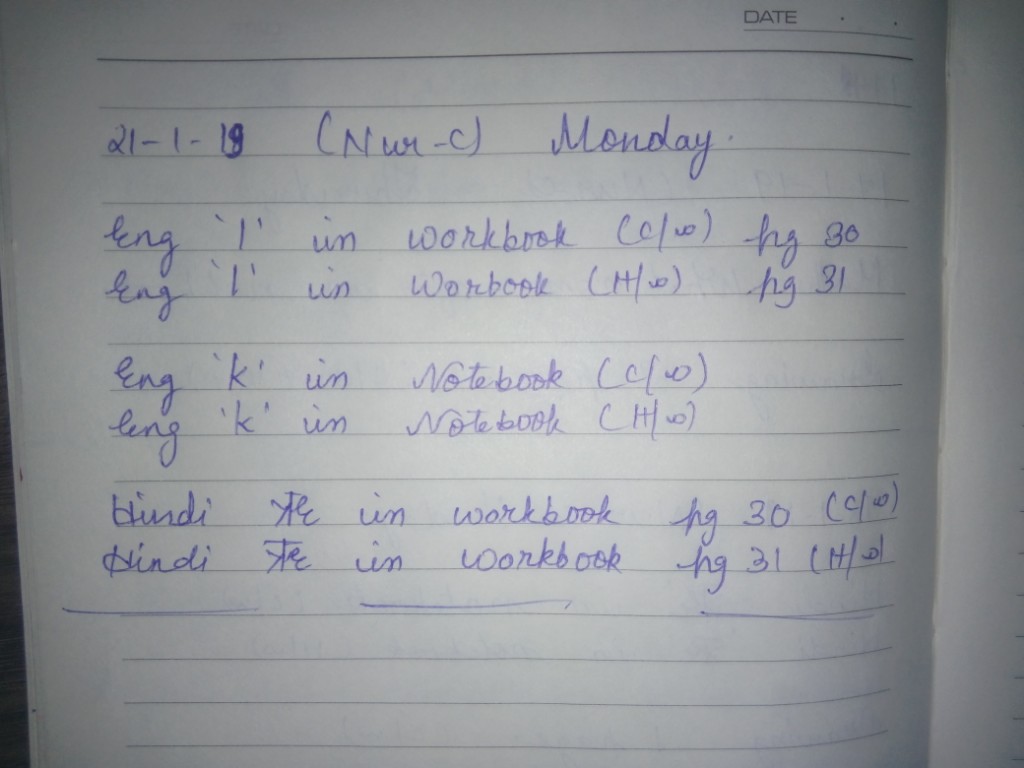 DATE . .
21-1-19 (Nur-C) Monday.
Eng 'l' in workbook (C/w) pg 30
Eng 'l' in Worbook (H/w) pg 31
Eng 'k' in Notebook (C/w)
Eng 'k' in Notebook (H/w)
Hindi ऋ in workbook pg 30 (C/w)
Hindi ऋ in workbook pg 31 (H/w)